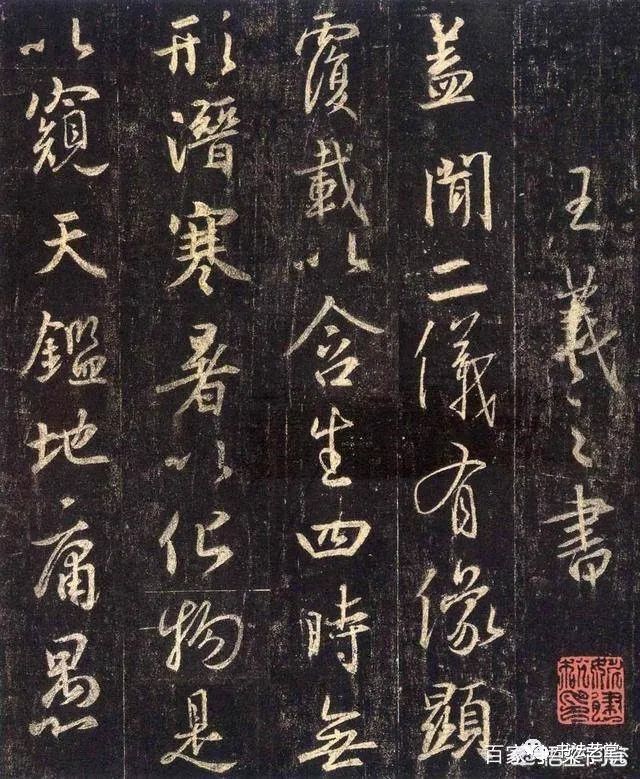 王羲之書
蓋聞二儀有像顯
覆載以含生四時無
形潛寒暑以化物是
以窺天鑑地庸愚
书法艺堂